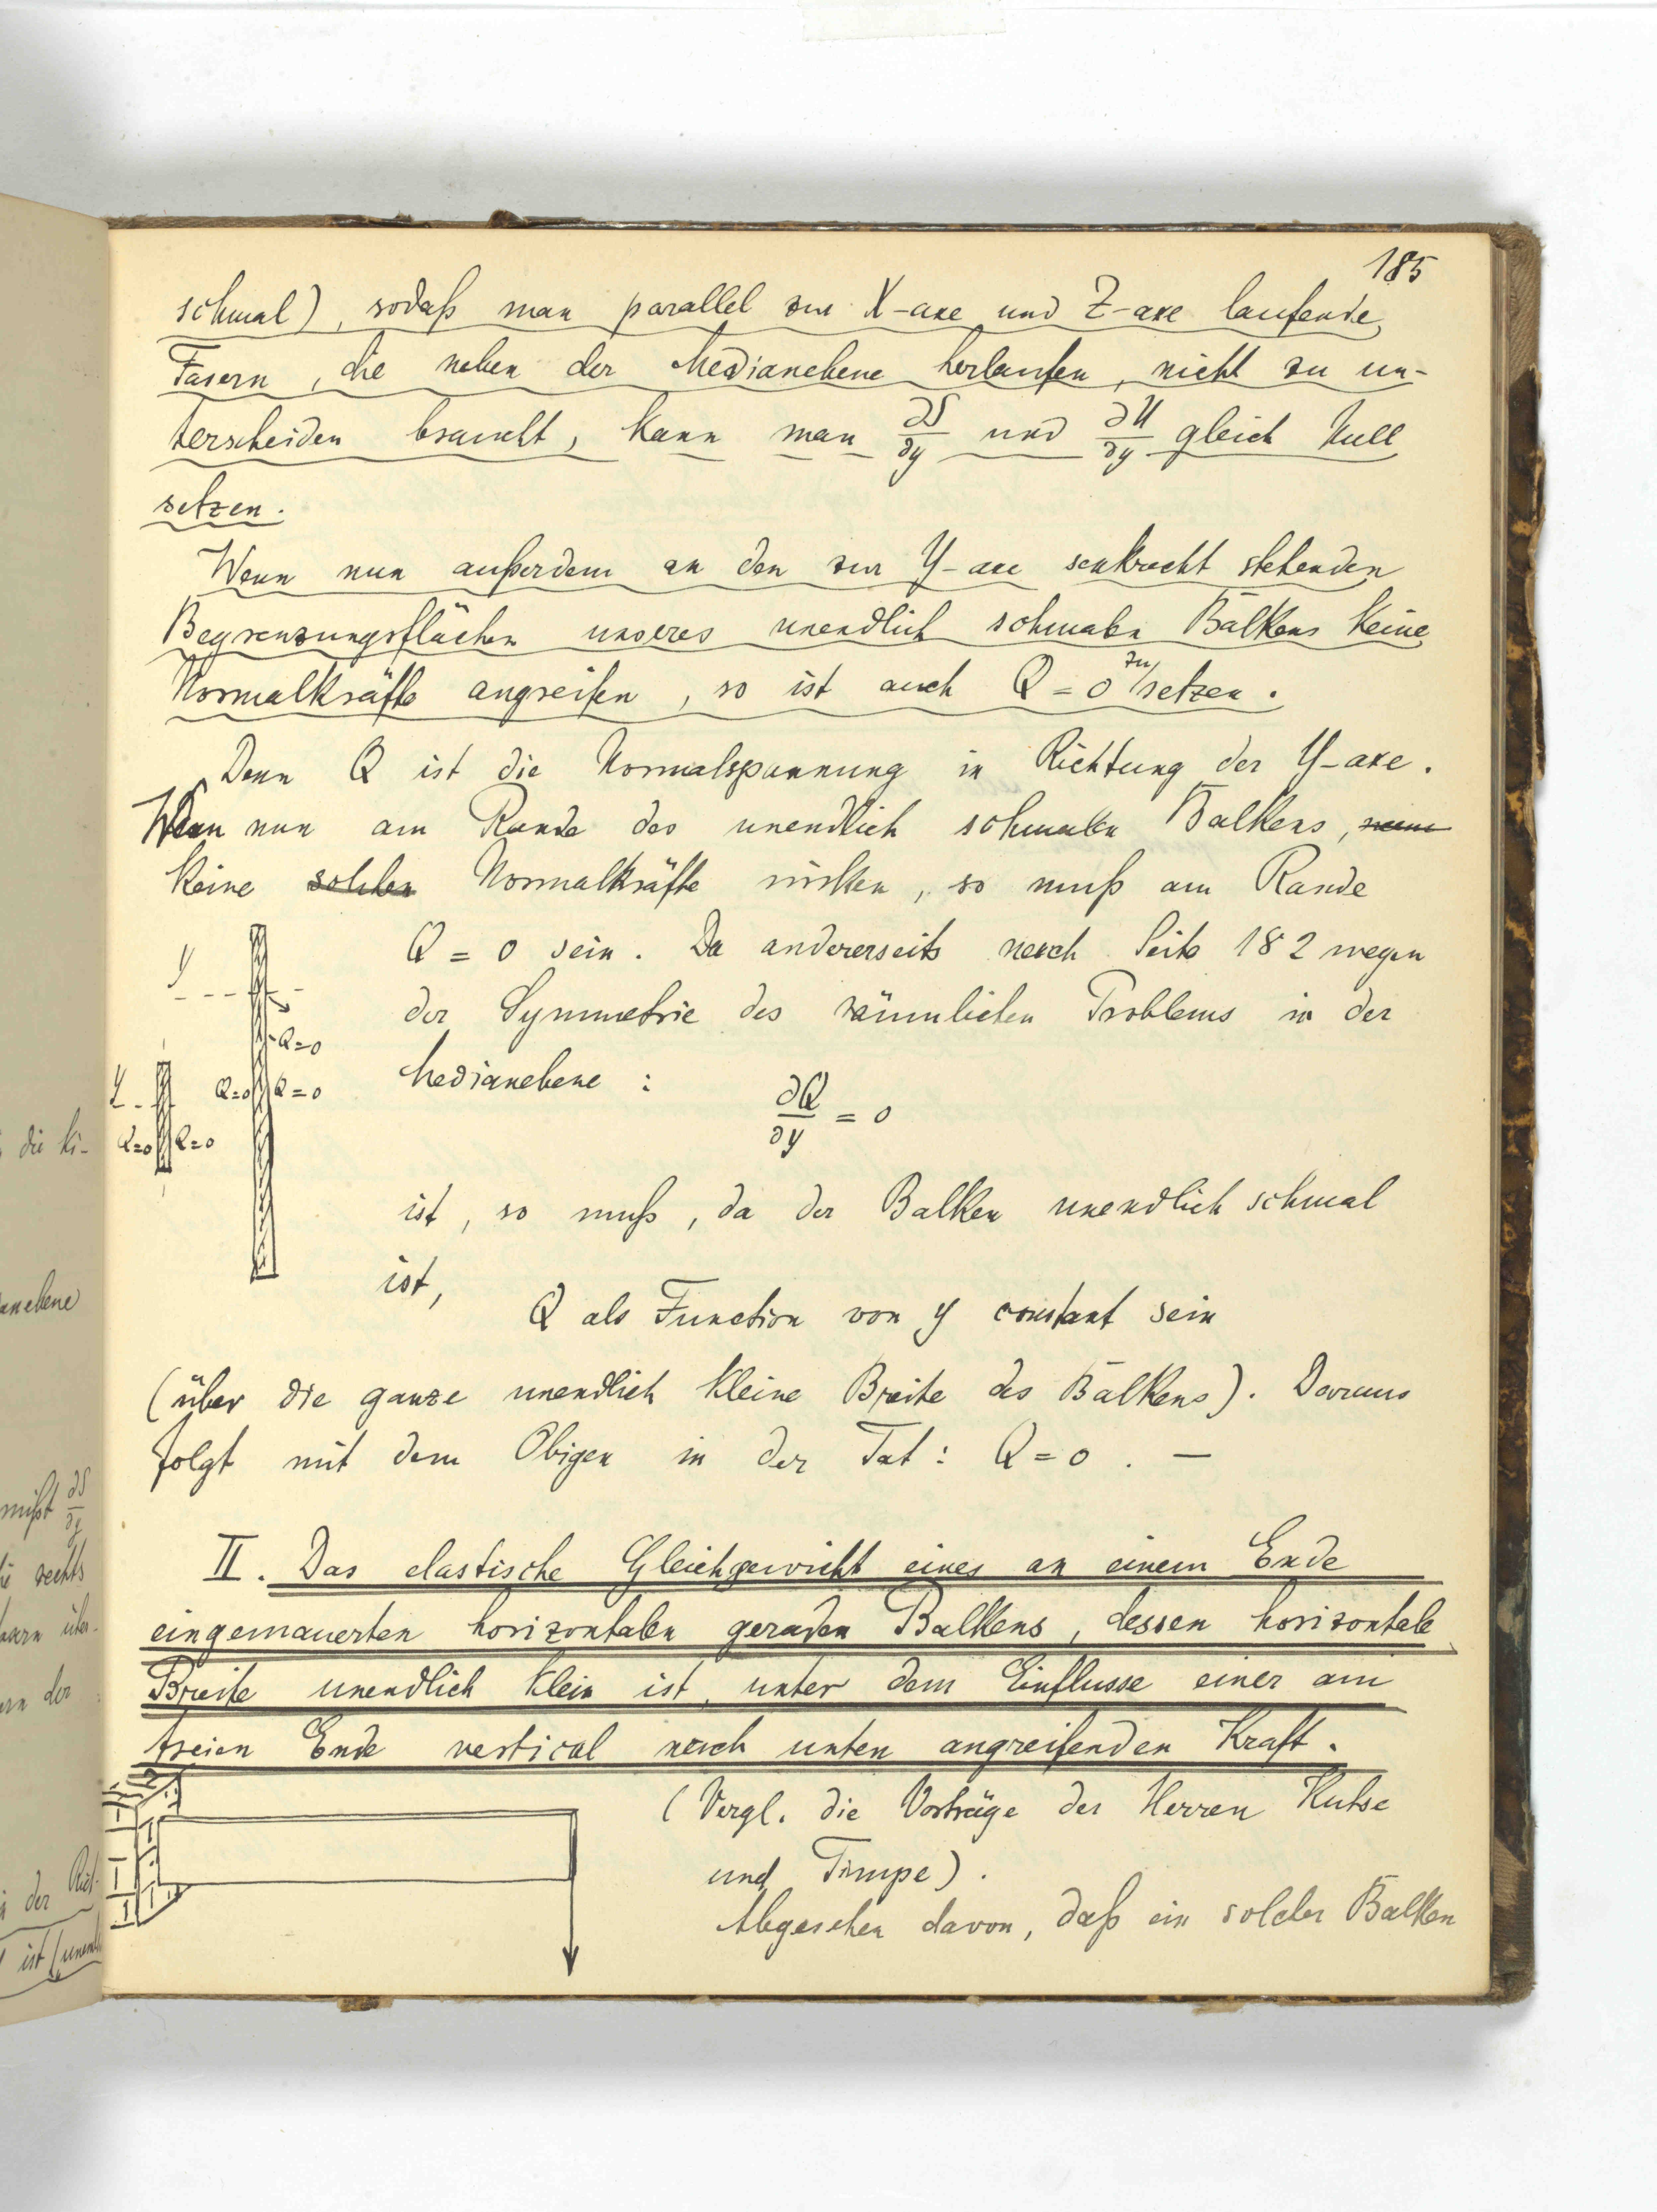 185
schmal), sodaß man parallel zur X-axe und Z-axe laufende
Fasern, die neben der Medianebene herlaufen, nicht zu un-
terscheiden braucht, kann man ∂S/∂y und ∂U/∂y gleich Null
setzen.
Wenn nun außerdem an den zur Y-axe senkrecht stehenden
Begrenzungsflächen unseres unendlich schmalen Balkens keine
Normalkräfte angreifen, so ist auch Q = 0 zu setzen.
Denn Q ist die Normalspannung in Richtung der Y-axe.
Wenn nun am Rande des unendlich schmalen Balkens,
keine solchen Normalkräfte wirken, so muß am Rande
Q = 0 sein. Da andererseits nach Seite 182 wegen
der Symmetrie des räumlichen Problems in der
Medianebene :
∂Q/∂y = 0
ist, so muß, da der Balken unendlich schmal
ist,
Q als Function von y constant sein
(über die ganze unendlich kleine Breite des Balkens). Daraus
folgt mit dem Obigen in der Tat: Q = 0. —
Y
Q=0
Q=0 Q=0
Y
Q=0 Q=0
II. Das elastische Gleichgewicht eines an einem Ende
eingemauerten horizontalen geraden Balkens, dessen horizontale
Breite unendlich klein ist, unter dem Einflusse einer am
freien Ende vertical nach unten angreifenden Kraft.
(Vergl. die Vorträge der Herren Kutse
und Timpe).
Abgesehen davon, daß ein solcher Balken
die
anebene
mißt ∂S/∂y
rechts
über-
der
in der
ist